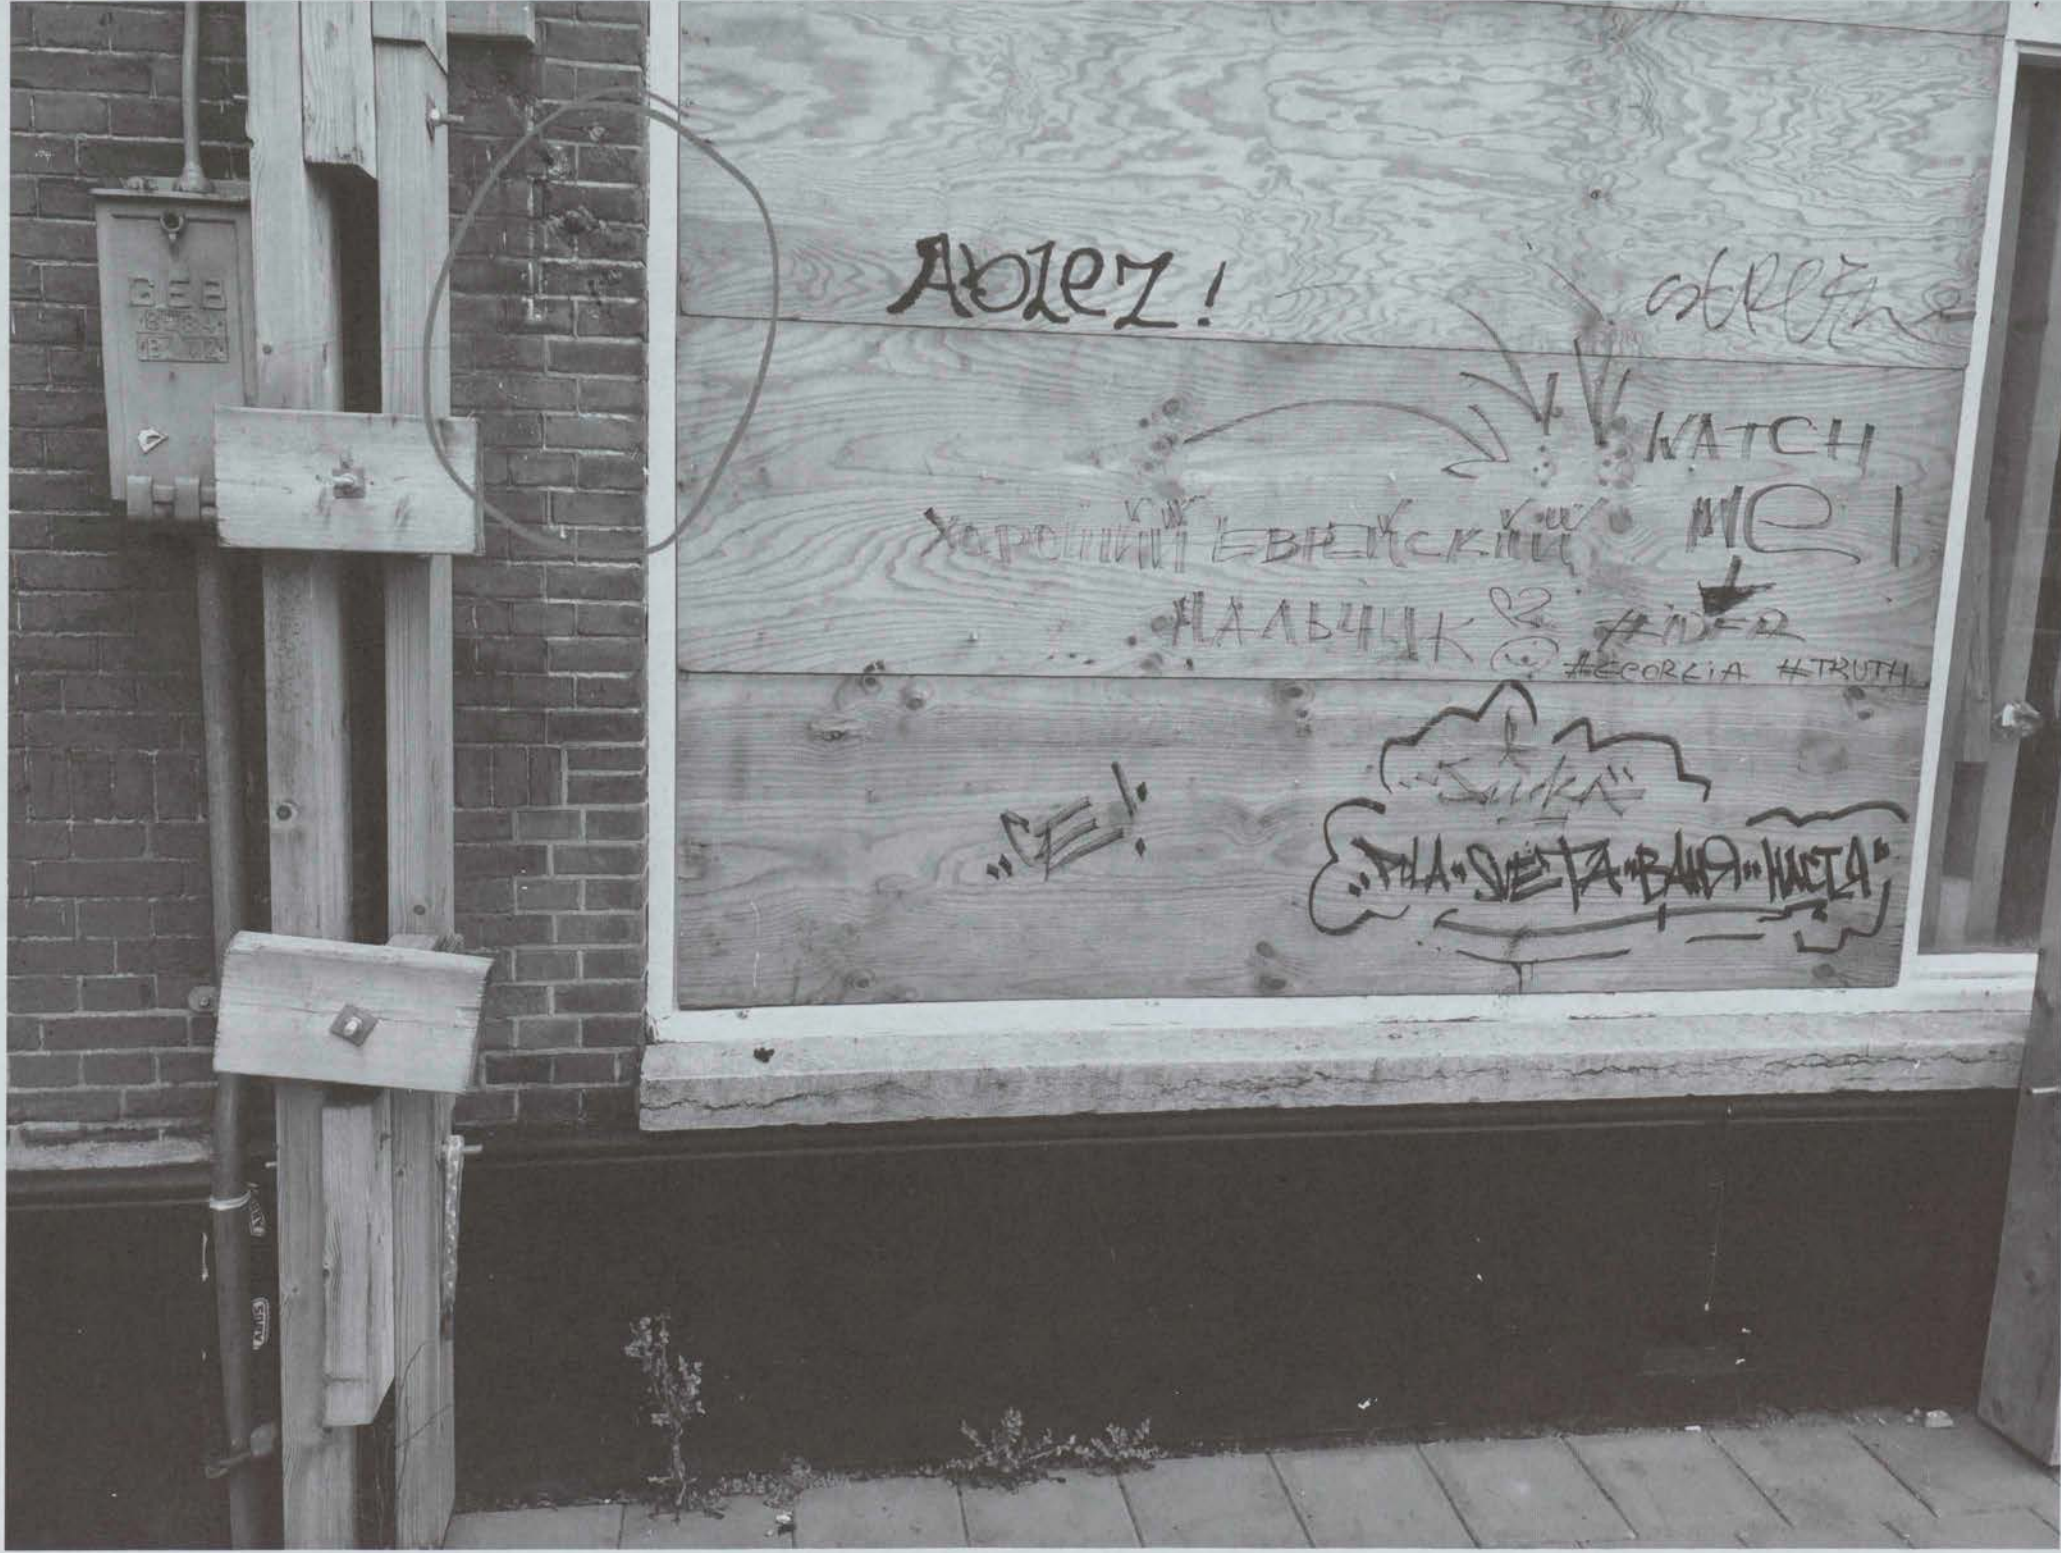 G.E.B
Ablez!
WATCH
ME!
ХОРОШИЙ ЕВРЕЙСКИЙ
МАЛЬЧИК
#TRUTH
"Suka"
"CE!
"PILA" SVETA "ВАНЯ" НАСТЯ"
ABUS